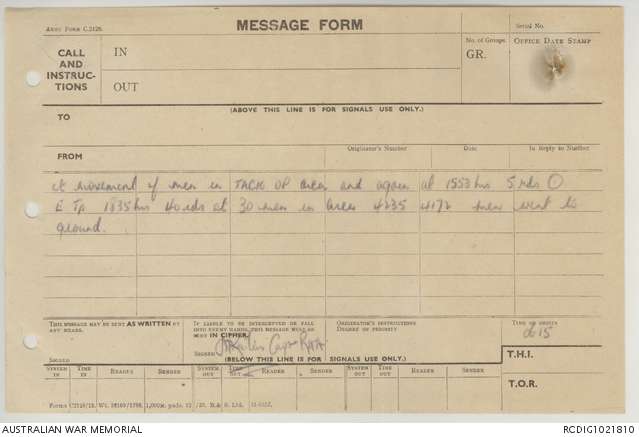 ARMY FORM C.2128.
MESSAGE FORM
Serial No.
CALL AND INSTRUC- TIONS
IN
OUT
No. of Groups.
GR.
OFFICE DATE STAMP
(ABOVE THIS LINE IS FOR SIGNALS USE ONLY.)
TO
FROM
Originator's Number
Date
In Reply to Number
at movement of men in TACK OP area and again at 1553 hrs 5 rds
E Tp 1835 hrs 40 rds at 30 men in area 4235 4172 men went to
ground.
THIS MESSAGE MAY BE SENT AS WRITTEN BY ANY MEANS.
SIGNED
IF LIABLE TO BE INTERCEPTED OR FALL INTO ENEMY HANDS, THIS MESSAGE MUST BE SENT IN CIPHER.
SIGNED Capt RAA
ORIGINATOR'S INSTRUCTIONS
DEGREE OF PRIORITY
TIME OF ORIGIN
0615
(BELOW THIS LINE IS FOR SIGNALS USE ONLY.)
T.H.I.
T.O.R.
SYSTEM IN
TIME IN
READER
SENDER
SYSTEM OUT
TIME OUT
READER
SENDER
SYSTEM OUT
TIME OUT
READER
SENDER
AUSTRALIAN WAR MEMORIAL
RCDIG1021810